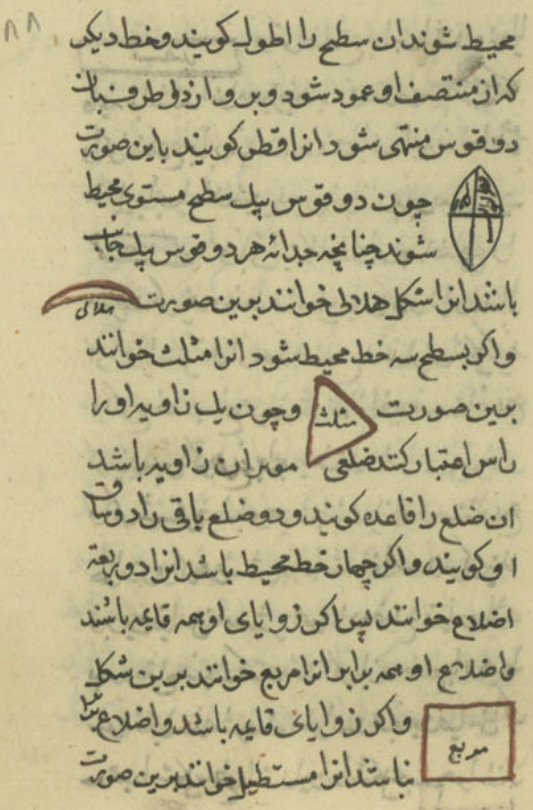 ۸۸
محیط شوند ان سطح را اطول کویند و خط دیکر
که از منتصف او عمود شود و بر و ارد و طرف بان
دو قوس منتهی شود انرا قطر کویند باین صورت
چون دو قوس بیک سطح مستوی محیط
شوند چنانچه حدبه هر دو قوس یک جانب
باشد انرا شکل هلالی خوانند برین صورت هلالی
و اکر بسطح سه خط محیط شود انرا مثلث خوانند
برین صورت مثلث و چون یک زاویه او را
راس اعتبار کنند ضلعی موبر ان زاویه باشد
ان ضلع را قاعده کویند و دو ضلع باقی را دو ساق
او کویند و اکر چهار خط محیط باشد انرا ذو اربعة
اضلاع خوانند پس اکر زوایای او همه قایمه باشند
و اضلاع او همه برابر انرا مربع خوانند برین شکل
مربع و اکر زوایای قایمه باشد و اضلاع
نباشد انرا مستطیل خوانند برین صورت